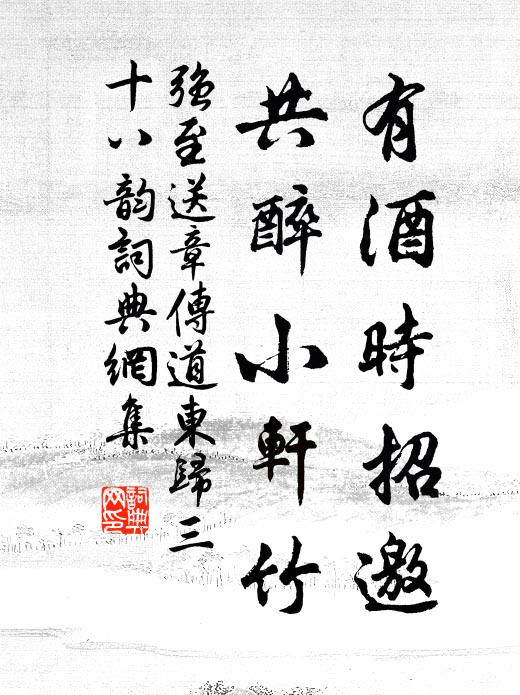 有酒時招邀
共醉小軒竹
強至送章傳道東歸三
十八韵詞典網集
詞典
网印